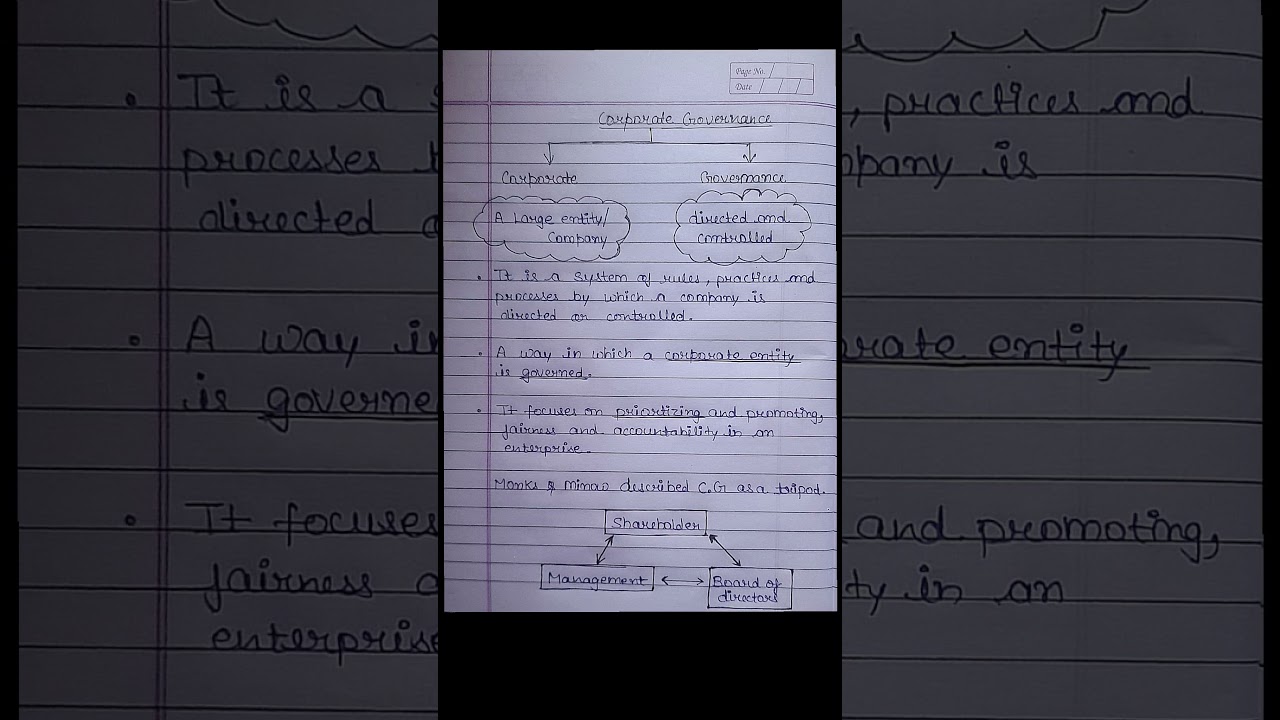 Page No.
Date
Corporate Governance
Corporate
Governance
A Large entity/
Company
directed and
controlled
• It is a system of rules, practices and
processes by which a company is
directed or controlled.
• A way in which a corporate entity
is governed.
• It focuses on prioritizing and promoting,
fairness and accountability in an
enterprise.
Monks & Minow described C.G as a tripod.
Shareholder
Management
Board of
directors